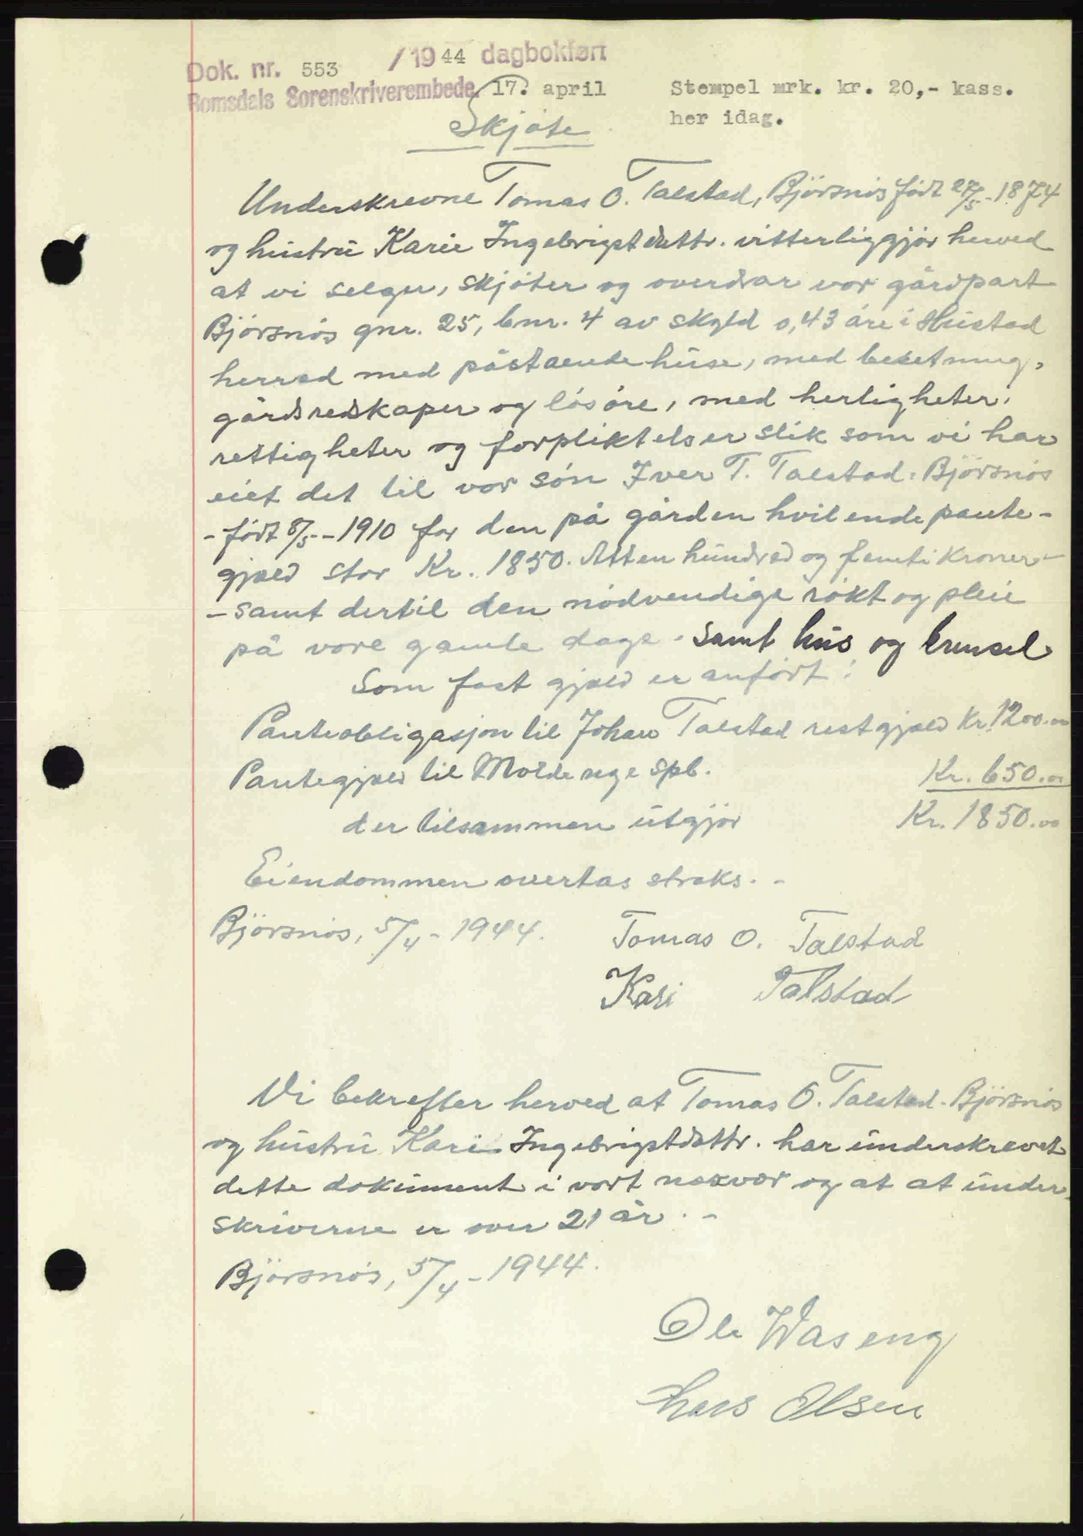 Dok. nr. 553 /19 44 dagbokført
Romsdals Sorenskriverembede. 17. april
Stempel mrk. kr. 20,- kass.
her idag.
Skjöte
Underskrevne Tomas O. Talstad, Björsnös född 27/5-1874
og hustru Kari Ingebrigtsdattr. vitterliggjör herved
at vi selger, skjöter og overdrar vor gårdpart
Björsnös gnr. 25, bnr. 4 av skyld 0,43 öre i Hustad
herred med påstaende huse, med besetning,
gårdsredskaper og lösöre, med herligheter,
rettigheter og forpliktelser slik som vi har
eiet det til vor sön Iver T. Talstad. Björsnös
- född 8/5-1910 for den på gården hvilende pante-
gjæld stor Kr. 1850. Atten hundred og femti kroner-
- samt dertil den nödvendige rökt og pleie
på vore gamle dage. Samt hus og brensel
Som fast gjæld er anfört:
Panteobligasjon til Johan Talstad restgjæld Kr. 1200.00
Pantegjæld til Molde og e spb. Kr. 650.00
der tilsammen utgjör Kr. 1850.00
Eiendommen overtas straks. -
Björsnös, 5/4 - 1944.
Tomas O. Talstad
Kari Talstad
Vi bekrefter herved at Tomas O. Talstad. Björsnös
og hustru Kari Ingebrigtsdattr. har underskrevet
dette dokument i vort nærvær og at at under-
skriverne er over 21 år. -
Björsnös, 5/4 - 1944.
Ole Waseng
Lars Olsen